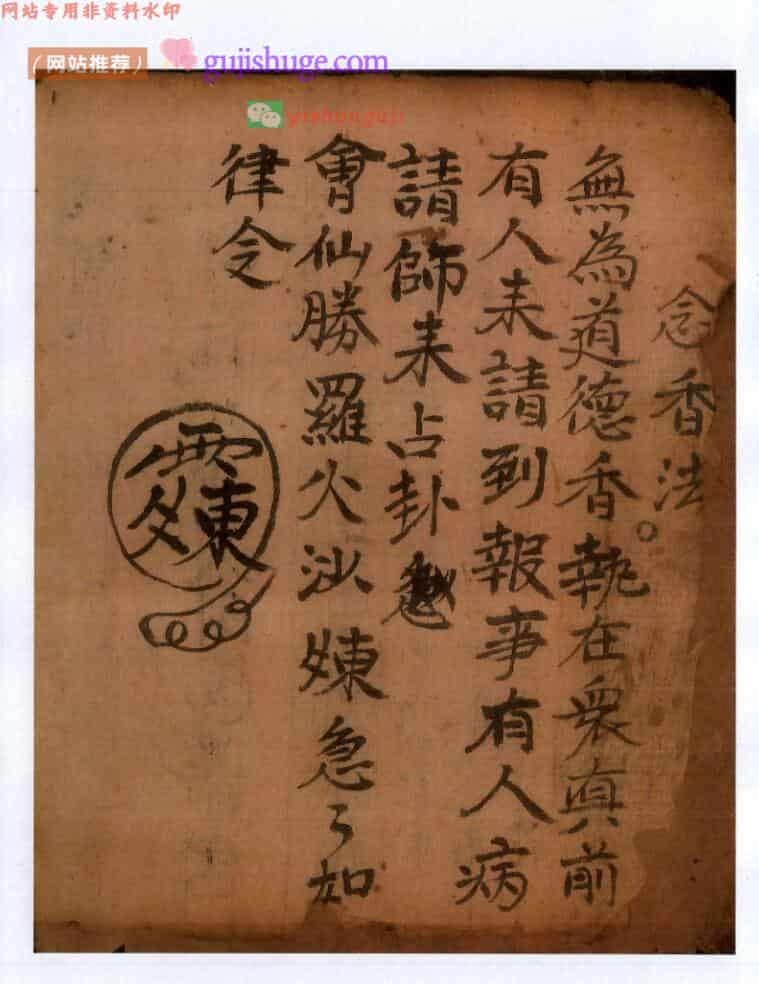 网站专用非资料水印
（网站推荐） gujishuge.com
yishunguji
念香法
無為道德香。執在衆真前
有人来請到報事有人病
請師来占卦
會仙勝羅火沙煉急々如
律令